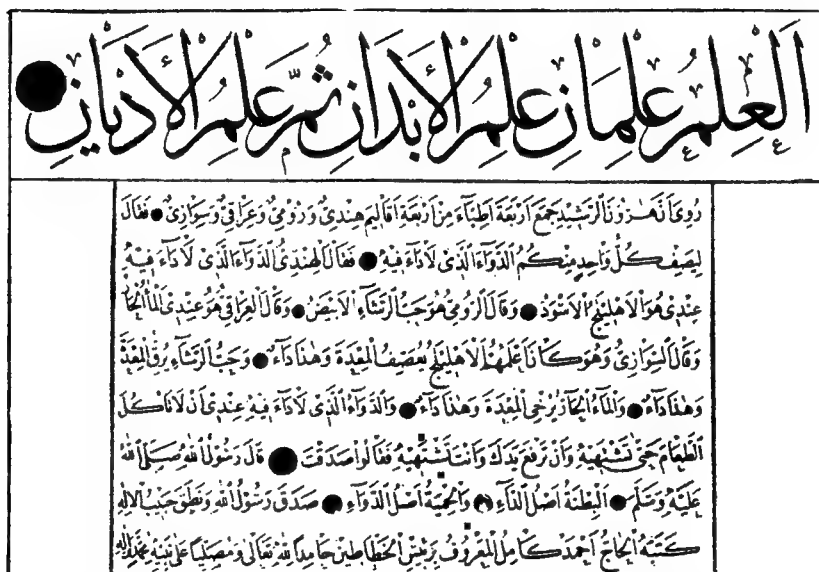 اَلْعِلْمُ عِلْمَانِ عِلْمُ الْأَبْدَانِ ثُمَّ عِلْمُ الْأَدْيَانِ
رُوِىَ اَنَّ هٰرُونَ الرَّشِيْدِ جَمَعَ اَرْبَعَةَ اَطِبَّآءَ مِنْ اَرْبَعَةِ اَقَالِيمَ هِنْدِىٌّ وَرُومِىٌّ وَعِرَاقِىٌّ وَسِوَازِىٌّ ● فَقَالَ
لِيَصِفْ كُلُّ وَاحِدٍ مِنْكُمُ الدَّوَآءَ الَّذِى لَا دَآءَ فِيْهِ ● فَقَالَ الْهِنْدِىُّ الدَّوَآءُ الَّذِى لَا دَآءَ فِيْهِ
عِنْدِى هُوَ الْاَهْلِيْلَجُ الْاَسْوَدُ ● وَقَالَ الرُّومِىُّ هُوَ حَبُّ الرَّشَآءِ الْاَبْيَضُ ● وَقَالَ الْعِرَاقِىُّ هُوَ عِنْدِى الْمَآءُ الْحَآرُّ
وَقَالَ السِّوَازِىُّ وَهُوَ كَانَ اَعْلَمَهُمْ اَلْاَهْلِيْلَجُ يُعْصِفُ الْمِعْدَةَ وَهٰذَا دَآءٌ ● وَحَبُّ الرَّشَآءِ يُرِقُّ الْمِعْدَةَ
وَهٰذَا دَآءٌ ● وَالْمَآءُ الْحَآرُّ يُرْخِى الْمِعْدَةَ وَهٰذَا دَآءٌ ● وَالدَّوَآءُ الَّذِى لَا دَآءَ فِيْهِ عِنْدِى اَنْ لَا تَاْكُلَ
الطَّعَامَ حَتّٰى تَشْتَهِيَهُ وَاَنْ تَرْفَعَ يَدَكَ وَاَنْتَ تَشْتَهِيْهِ فَقَالُوا صَدَقْتَ ● قَالَ رَسُولُ اللهِ صَلَّى اللهُ
عَلَيْهِ وَسَلَّمَ ● اَلْبِطْنَةُ اَصْلُ الدَّآءِ ● وَالْحِمْيَةُ اَصْلُ الدَّوَآءِ ● صَدَقَ رَسُولُ اللهِ وَنَطَقَ حَبِيْبُ الْاِلٰهِ
كَتَبَهُ الْحَاجُّ اَحْمَدْ كَامِلُ الْمَعْرُوفُ بِرَئِيسِ الْخَطَّاطِيْنَ حَامِدًا لِلّٰهِ تَعَالٰى وَمُصَلِّيًا عَلٰى نَبِيِّهِ مُحَمَّدٍ وَاٰلِهِ